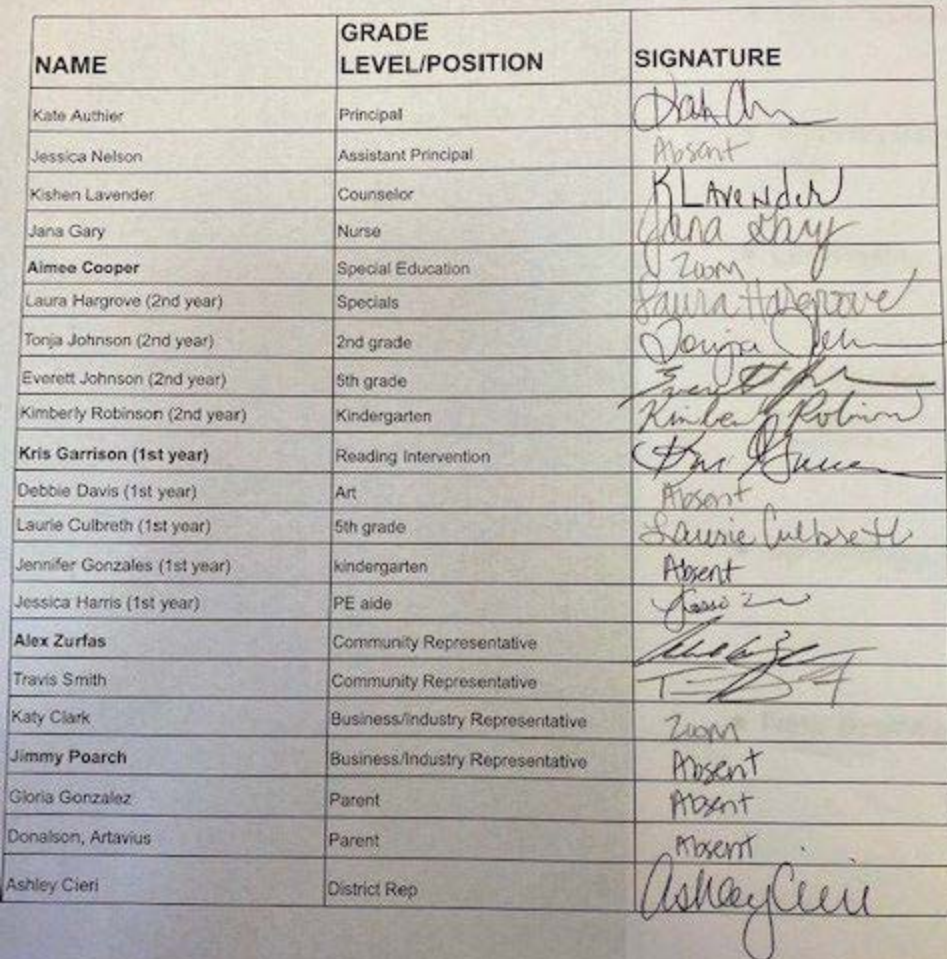 NAME GRADE LEVEL/POSITION SIGNATURE
Kate Authier Principal
Jessica Nelson Assistant Principal Absent
Kishen Lavender Counselor K LAvender
Jana Gary Nurse Jana Gary
Aimee Cooper Special Education Zoom
Laura Hargrove (2nd year) Specials Laura Hargrove
Tonja Johnson (2nd year) 2nd grade
Everett Johnson (2nd year) 5th grade Everett
Kimberly Robinson (2nd year) Kindergarten Kimberly Robinson
Kris Garrison (1st year) Reading Intervention
Debbie Davis (1st year) Art Absent
Laurie Culbreth (1st year) 5th grade Laurie Culbreth
Jennifer Gonzales (1st year) kindergarten Absent
Jessica Harris (1st year) PE aide
Alex Zurfas Community Representative
Travis Smith Community Representative
Katy Clark Business/Industry Representative Zoom
Jimmy Poarch Business/Industry Representative Absent
Gloria Gonzalez Parent Absent
Donalson, Artavius Parent Absent
Ashley Cieri District Rep Ashley Cieri